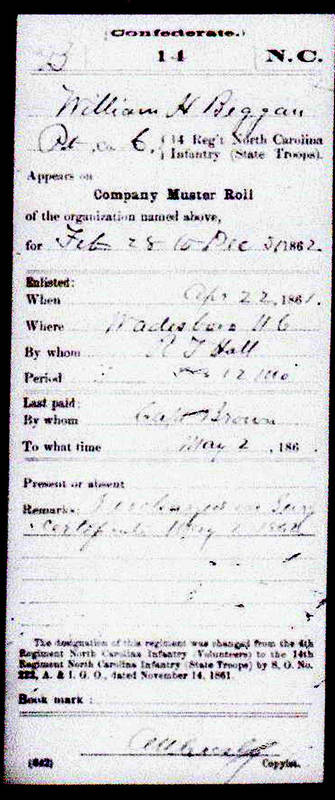 (Confederate.)
B 14 N.C.
William H Beggan
Pvt, Co. C, 14 Reg't North Carolina
Infantry (State Troops).
Appears on
Company Muster Roll
of the organization named above,
for Feb 28 to Dec 31, 1862.
Enlisted:
When Apr 22, 1861.
Where Wadesboro N C
By whom R T Hall
Period 12 mo
Last paid:
By whom Capt Brown
To what time May 2, 186
Present or absent
Remarks: Discharged on Surg
Certificate May 2 1862
The designation of this regiment was changed from the 4th
Regiment North Carolina Infantry (Volunteers) to the 14th
Regiment North Carolina Infantry (State Troops) by S. O. No.
222, A. & I. G. O., dated November 14, 1861.
Book mark:
(642) Copyist.